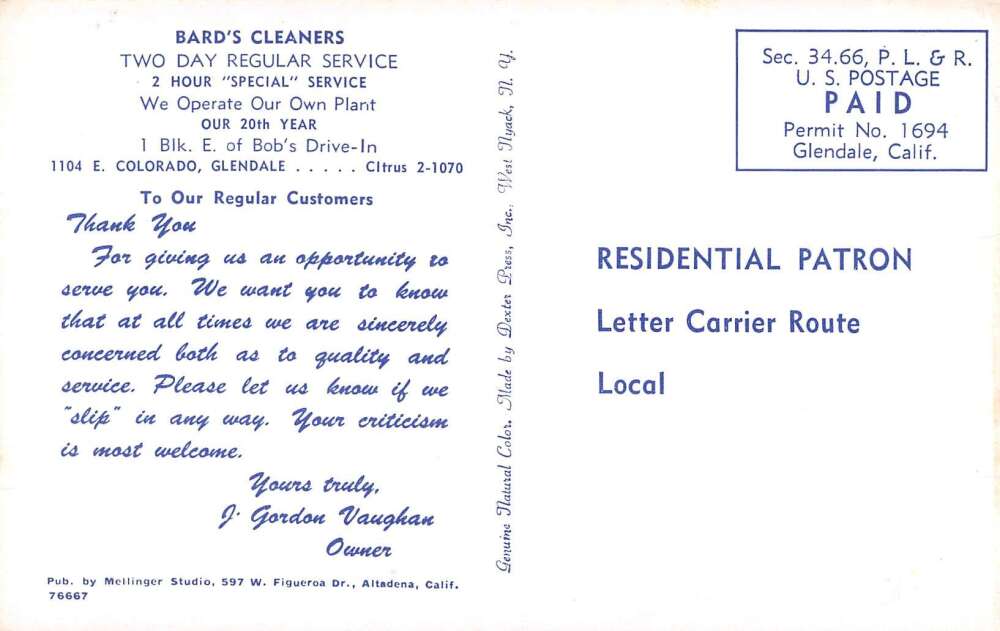 BARD'S CLEANERS
TWO DAY REGULAR SERVICE
2 HOUR "SPECIAL" SERVICE
We Operate Our Own Plant
OUR 20th YEAR
1 Blk. E. of Bob's Drive-In
1104 E. COLORADO, GLENDALE . . . . . CItrus 2-1070
To Our Regular Customers
Thank You
For giving us an opportunity to
serve you. We want you to know
that at all times we are sincerely
concerned both as to quality and
service. Please let us know if we
"slip" in any way. Your criticism
is most welcome.
Yours truly,
J. Gordon Vaughan
Owner
Pub. by Mellinger Studio, 597 W. Figueroa Dr., Altadena, Calif.
76667
Genuine Natural Color, Made by Dexter Press, Inc., West Nyack, N. Y.
Sec. 34.66, P. L. & R.
U. S. POSTAGE
PAID
Permit No. 1694
Glendale, Calif.
RESIDENTIAL PATRON
Letter Carrier Route
Local